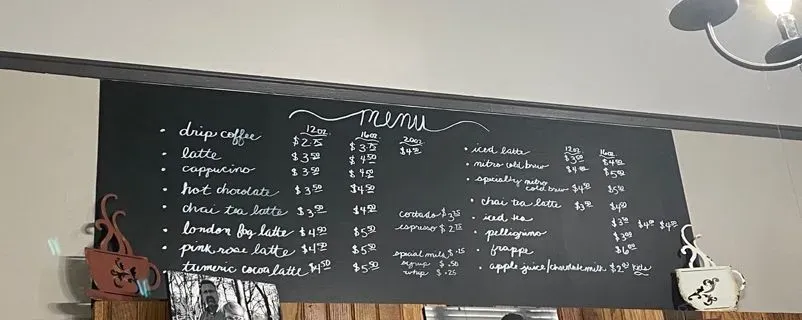 menu
12oz 16oz 20oz
• drip coffee $2.75 $3.75 $4.50
• latte $3.50 $4.50
• cappucino $3.50 $4.50
• hot chocolate $3.50 $4.50
• chai tea latte $3.50 $4.50
• london fog latte $4.50 $5.50
• pink rose latte $4.50 $5.50
• tumeric cocoa latte $4.50 $5.50
cortado $3.75
espresso $2.75
special milk $.75
syrup $.50
whip $.25
12oz 16oz
• iced latte $3.50 $4.50
• nitro cold brew $4.00 $5.00
• specialty nitro
cold brew $4.50 $5.50
• chai tea latte $3.50 $4.50
• iced tea $3.00 $4.00
• pellegrino $3.00
• frappe $6.00
• apple juice/chocolate milk $2.00 kids